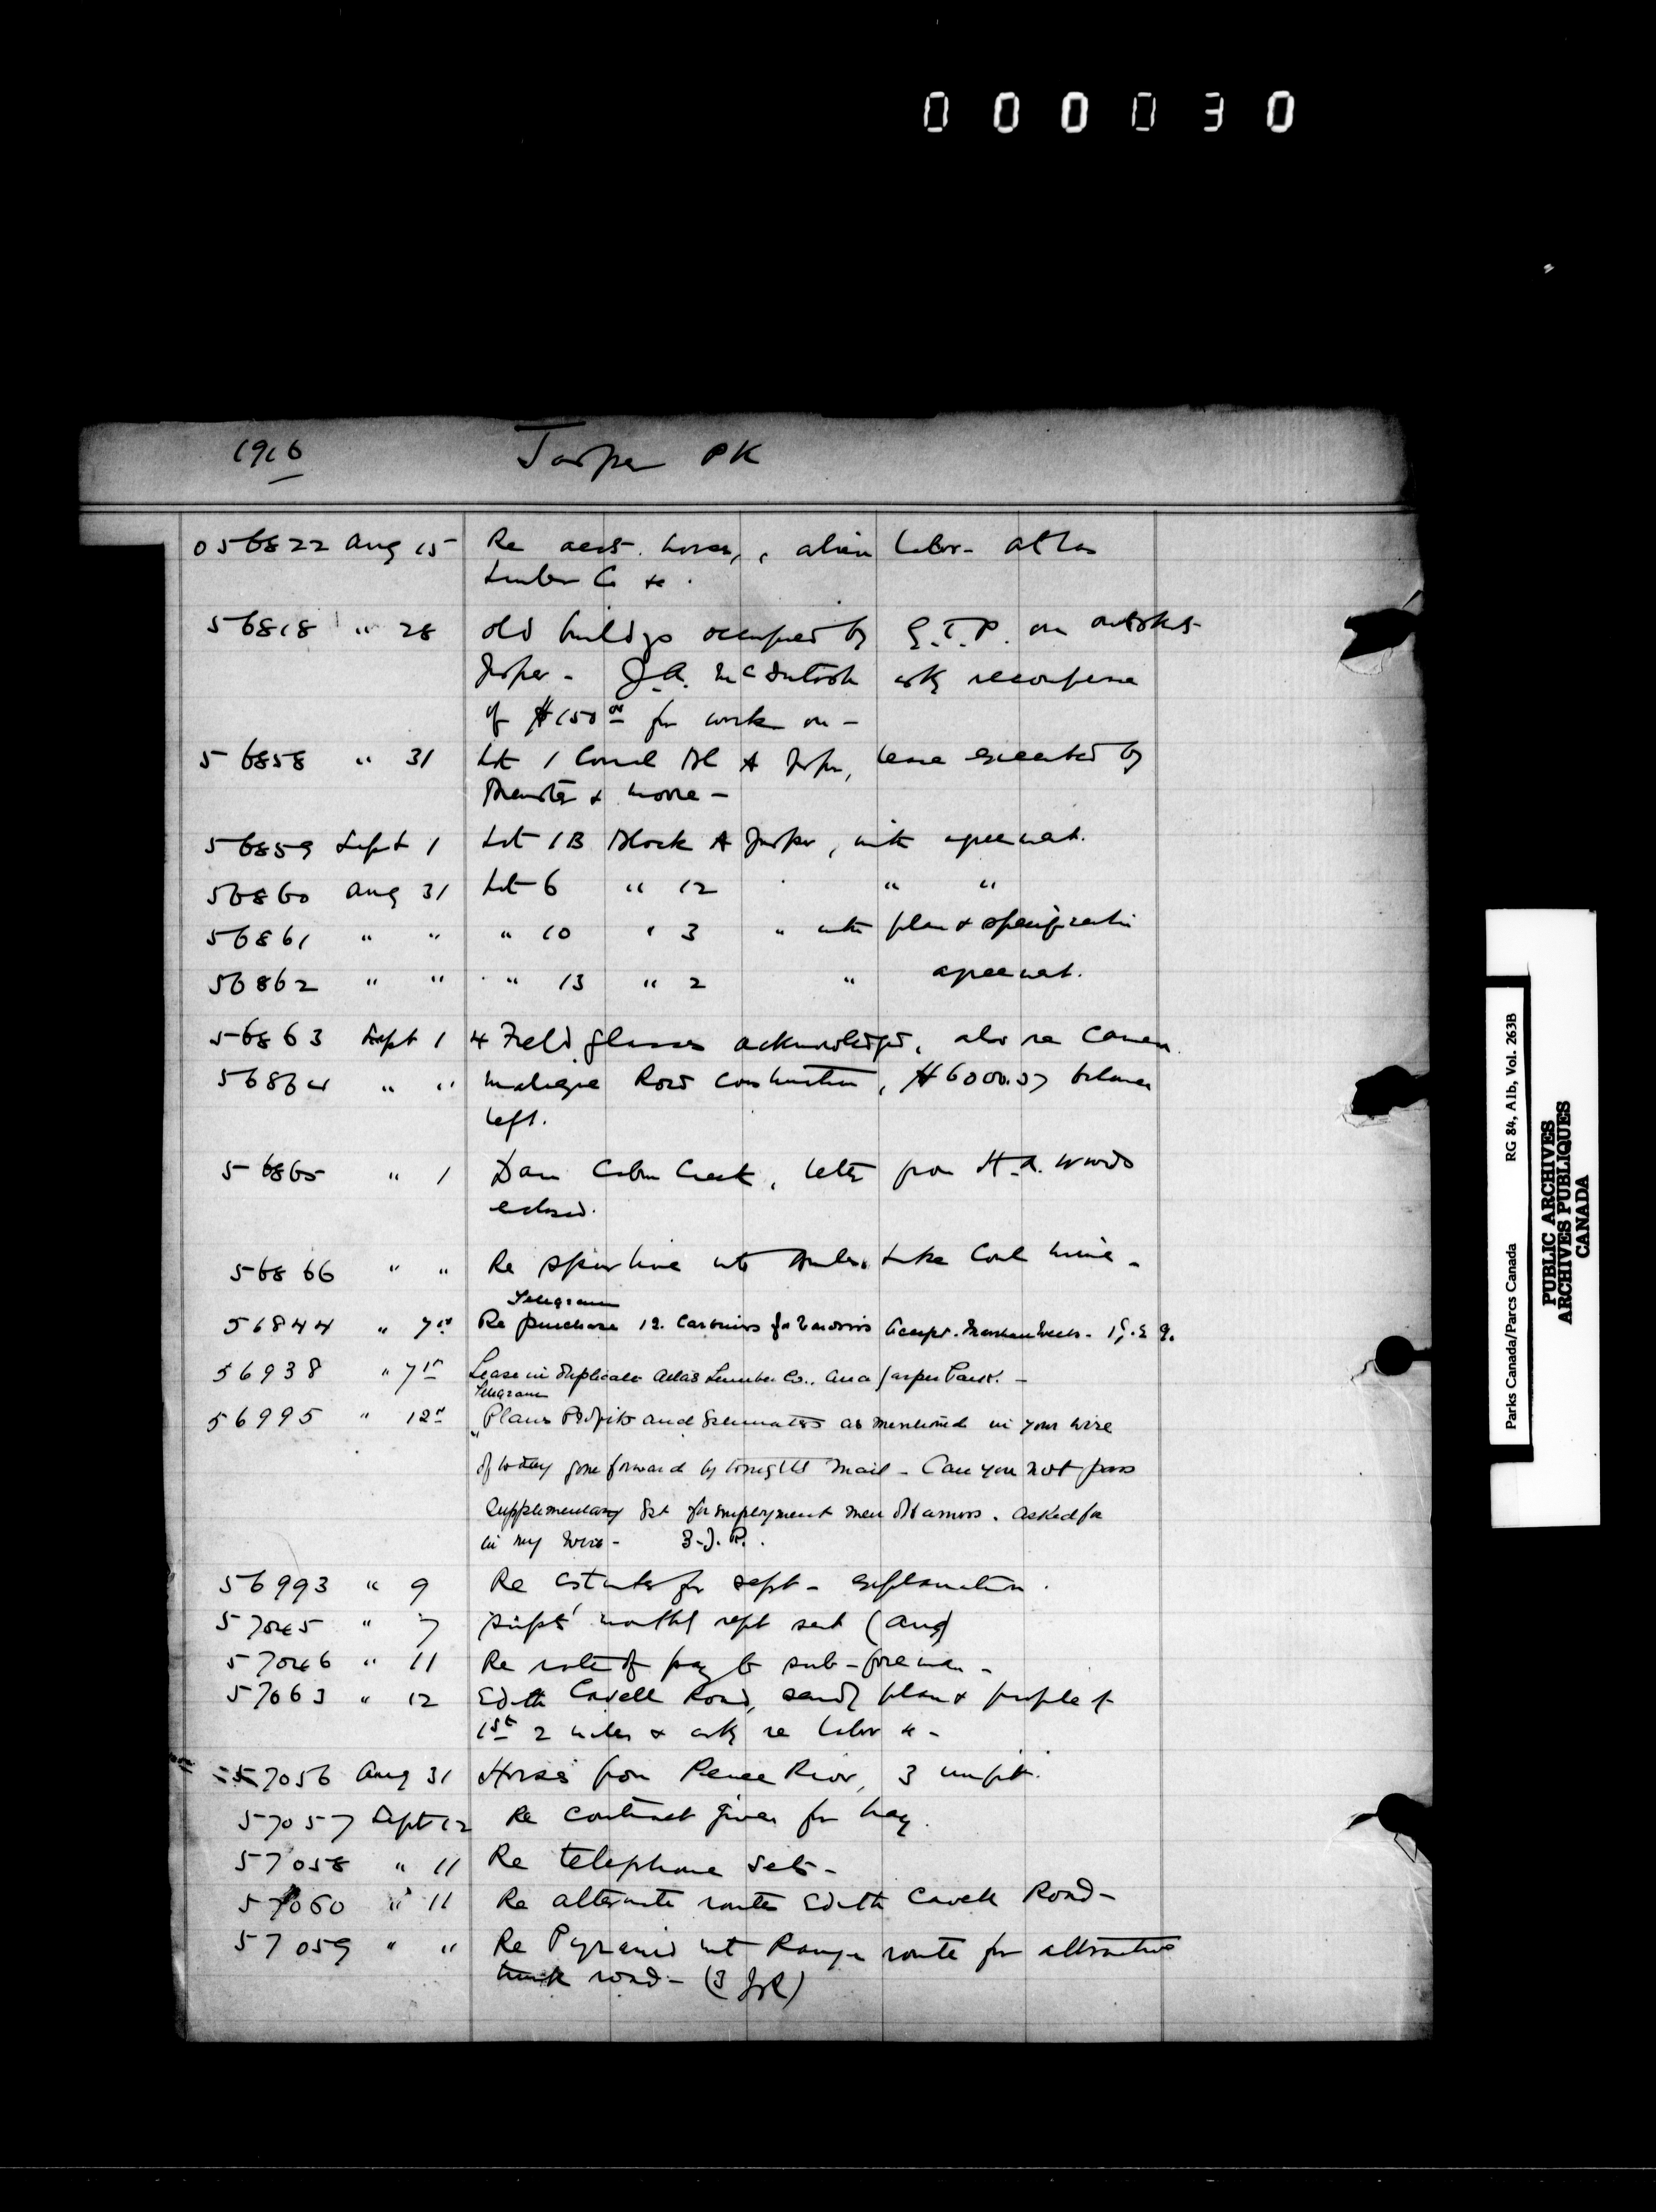 000030
1916 Jasper PK
056822 Aug 15 Re acct. , alien labor - Atlas
Lumber Co &c.
56818 " 28 old buildgs occupied by G.T.P. on outskts
Jasper - J.A. McIntosh askg recompense
of $150 00 for work on -
56858 " 31 Lot 1 Coml Bl A Jasper, lease executed by
& Moore -
56859 Sept 1 Lot 1B Block A Jasper, with agreement.
56860 Aug 31 Lot 6 " 12 " "
56861 " " " 10 " 3 " with plan & specification
56862 " " " 13 " 2 " agreement.
56863 Sept 1 4 Field glasses acknowledged, also re Camera
56864 " " Maligne Road Construction, $6000.57 balance
left.
56865 " 1 Dam Cabin Creek, letter from H.A. Woods
enclosed.
56866 " " Re spur line into Lake Coal mine -
Telegram
56844 " 7th Re purchase 12. for
56938 " 7th Lease in duplicate Atlas Lumber Co., Jasper Park. -
Telegram
56995 " 12th "Plans Profile and Estimates as mentioned in your wire
of today gone forward by tonights mail - Can you not pass
Supplementary Est for employment men . asked for
in my wire -
56993 " 9 Re estimates for Sept - explanation.
57045 " 7 Supts' monthly rept sent (Aug)
57046 " 11 Re rate of pay to sub-foreman -
57063 " 12 Edith Cavell Road, sendg plan & profile of
1st 2 miles & askg re labor &c -
57056 Aug 31 Horses from Peace River, 3 unfit.
57057 Sept 12 Re contract given for hay.
57058 " 11 Re telephone sets -
57060 " 11 Re alternate routes Edith Cavell Road -
57059 " " Re Pyramid Mt Range route for attractive
trunk road -
Parks Canada/Parcs Canada RG 84, Alb, Vol. 263B
PUBLIC ARCHIVES
ARCHIVES PUBLIQUES
CANADA